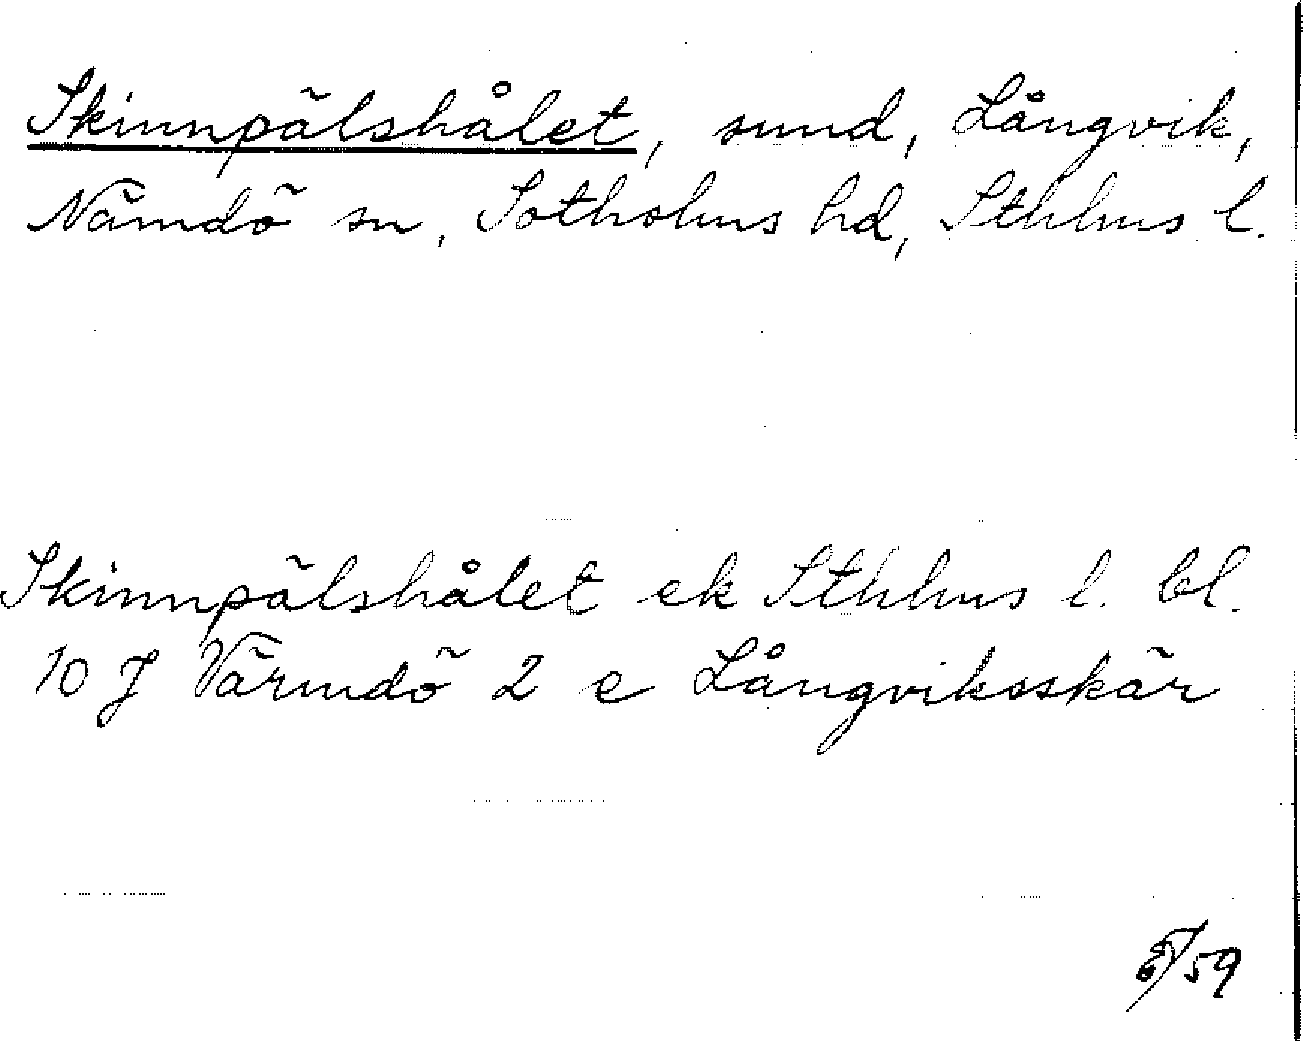 Skinnpälshålet, sund, Långvik,
Nämdö sn, Sotholms hd, Sthlms l.
Skinnpälshålet ek Sthlms l. bl.
10 J Värmdö 2 e Långviksskär
59